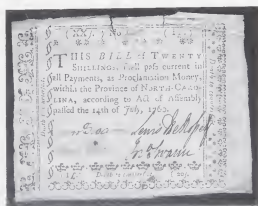 (XX s.) No ( )
THIS BILL of TWENTY
SHILLINGS, shall pass current in
all Payments, as Proclamation Money,
within the Province of NORTH-CARO-
LINA, according to Act of Assembly
passed the 14th of July, 1760.
Lewis DeRosset
Jno Swann